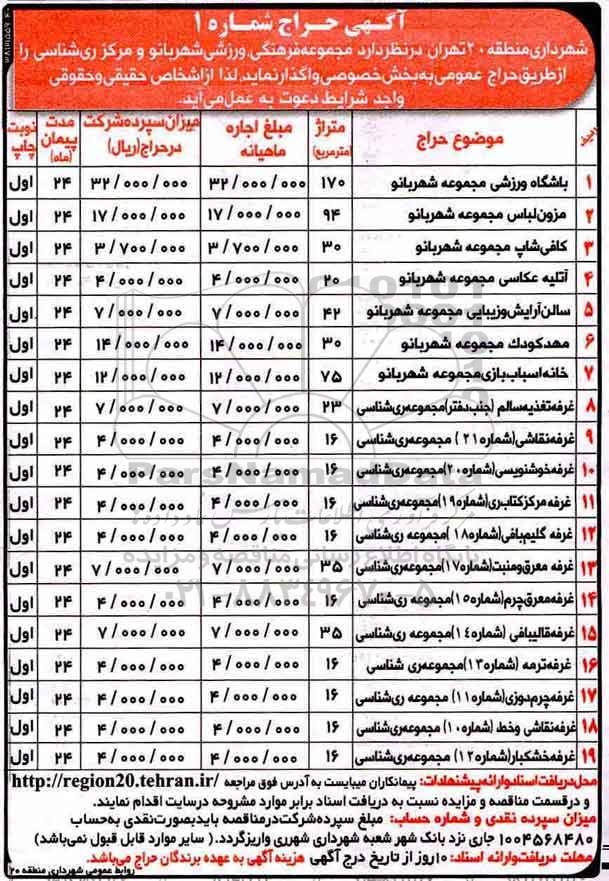 آگهی حراج شماره ۱
شهرداری منطقه ۲۰ تهران درنظردارد مجموعه فرهنگی،ورزشی شهربانو و مرکز ری شناسی را
ازطریق حراج عمومی به بخش خصوصی واگذارنماید،لذا ازاشخاص حقیقی وحقوقی
واجد شرایط دعوت به عمل می آید.
ردیف موضوع حراج متراژ (مترمربع) مبلغ اجاره ماهیانه میزان سپرده شرکت درحراج(ریال) مدت پیمان (ماه) نوبت چاپ
۱ باشگاه ورزشی مجموعه شهربانو ۱۷۰ ۳۲/۰۰۰/۰۰۰ ۳۲/۰۰۰/۰۰۰ ۲۴ اول
۲ مزون لباس مجموعه شهربانو ۹۴ ۱۷/۰۰۰/۰۰۰ ۱۷/۰۰۰/۰۰۰ ۲۴ اول
۳ کافی شاپ مجموعه شهربانو ۳۰ ۳/۷۰۰/۰۰۰ ۳/۷۰۰/۰۰۰ ۲۴ اول
۴ آتلیه عکاسی مجموعه شهربانو ۲۰ ۴/۰۰۰/۰۰۰ ۴/۰۰۰/۰۰۰ ۲۴ اول
۵ سالن آرایش وزیبایی مجموعه شهربانو ۴۲ ۷/۰۰۰/۰۰۰ ۷/۰۰۰/۰۰۰ ۲۴ اول
۶ مهدکودك مجموعه شهربانو ۳۰ ۱۴/۰۰۰/۰۰۰ ۱۴/۰۰۰/۰۰۰ ۲۴ اول
۷ خانه اسباب بازی مجموعه شهربانو ۷۵ ۱۲/۰۰۰/۰۰۰ ۱۲/۰۰۰/۰۰۰ ۲۴ اول
۸ غرفه تغذیه سالم (جنب دفتر)مجموعه ری شناسی ۲۳ ۷/۰۰۰/۰۰۰ ۷/۰۰۰/۰۰۰ ۲۴ اول
۹ غرفه نقاشی(شماره ۲۱ ) مجموعه ری شناسی ۱۶ ۴/۰۰۰/۰۰۰ ۴/۰۰۰/۰۰۰ ۲۴ اول
۱۰ غرفه خوشنویسی(شماره ۲۰)مجموعه ری شناسی ۱۶ ۴/۰۰۰/۰۰۰ ۴/۰۰۰/۰۰۰ ۲۴ اول
۱۱ غرفه مرکزکتاب ری(شماره ۱۹)مجموعه ری شناسی ۱۶ ۴/۰۰۰/۰۰۰ ۴/۰۰۰/۰۰۰ ۲۴ اول
۱۲ غرفه گلیم بافی(شماره ۱۸) مجموعه ری شناسی ۱۶ ۴/۰۰۰/۰۰۰ ۴/۰۰۰/۰۰۰ ۲۴ اول
۱۳ غرفه معرق ومنبت(شماره ۱۷)مجموعه ری شناسی ۳۵ ۷/۰۰۰/۰۰۰ ۷/۰۰۰/۰۰۰ ۲۴ اول
۱۴ غرفه معرق چرم(شماره ۱۵)مجموعه ری شناسی ۱۶ ۴/۰۰۰/۰۰۰ ۴/۰۰۰/۰۰۰ ۲۴ اول
۱۵ غرفه قالیبافی (شماره ۱۴)مجموعه ری شناسی ۳۵ ۷/۰۰۰/۰۰۰ ۷/۰۰۰/۰۰۰ ۲۴ اول
۱۶ غرفه ترمه (شماره ۱۳)مجموعه ری شناسی ۱۶ ۴/۰۰۰/۰۰۰ ۴/۰۰۰/۰۰۰ ۲۴ اول
۱۷ غرفه چرم دوزی(شماره ۱۱) مجموعه ری شناسی ۱۶ ۴/۰۰۰/۰۰۰ ۴/۰۰۰/۰۰۰ ۲۴ اول
۱۸ غرفه نقاشی وخط (شماره ۱۰)مجموعه ری شناسی ۱۶ ۴/۰۰۰/۰۰۰ ۴/۰۰۰/۰۰۰ ۲۴ اول
۱۹ غرفه خشکبار(شماره ۱۲)مجموعه ری شناسی ۱۶ ۴/۰۰۰/۰۰۰ ۴/۰۰۰/۰۰۰ ۲۴ اول
محل دریافت اسناد وارائه پیشنهادات: پیمانکاران میبایست به آدرس فوق مراجعه http://region20.tehran.ir/
و درقسمت مناقصه و مزایده نسبت به دریافت اسناد برابر موارد مشروحه درسایت اقدام نمایند.
میزان سپرده نقدی و شماره حساب: مبلغ سپرده شرکت درمناقصه بایدبصورت نقدی به حساب
۱۰۰۴۵۶۸۴۸۰ جاری نزد بانک شهر شعبه شهرداری شهرری واریزگردد.( سایر موارد قابل قبول نمی باشد)
مهلت دریافت وارائه اسناد: ۱۰روز از تاریخ درج آگهی هزینه آگهی به عهده برندگان حراج می باشد.
روابط عمومی شهرداری منطقه ۲۰
ParsNamadData
پایگاه اطلاع رسانی مناقصه و مزایده
۰۲۱-۸۸۳۴۹۶۷۰-۵